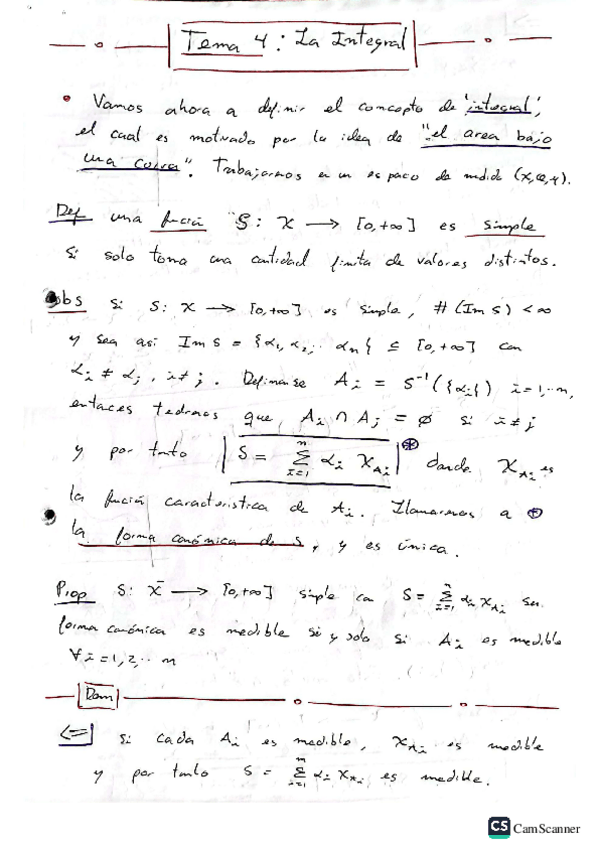 Tema 4: La Integral
• Vamos ahora a definir el concepto de 'integral',
el cual es motivado por la idea de "el area bajo
una curva". Trabajaremos en un espacio de medida (X, a, μ).
Def una función S: X → [0,+∞] es simple
si solo toma una cantidad finita de valores distintos.
Obs Si S: X → [0,+∞] es simple, #(Im S) < ∞
y sea asi Im S = {α₁, α₂, ·· αₙ} ⊆ [0,+∞] con
αᵢ ≠ αⱼ, i ≠ j. Definanse Aᵢ = S⁻¹({αᵢ}) i=1,··n,
entonces tedremos que Aᵢ ∩ Aⱼ = ∅ si i ≠ j
y por tanto S = Σᵢ₌₁ⁿ αᵢ χ_Aᵢ ⊛ donde χ_Aᵢ es
la función caracteristica de Aᵢ. Llamaremos a ⊛
la forma canónica de S, y es única.
Prop S: X → [0,+∞] simple con S = Σᵢ₌₁ⁿ αᵢ χ_Aᵢ su
forma canónica es medible si y solo si Aᵢ es medible
∀i=1,2,·· n
Dem
⇐ Si cada Aᵢ es medible, χ_Aᵢ es medible
y por tanto S = Σᵢ₌₁ⁿ αᵢ χ_Aᵢ es medible.
CS CamScanner